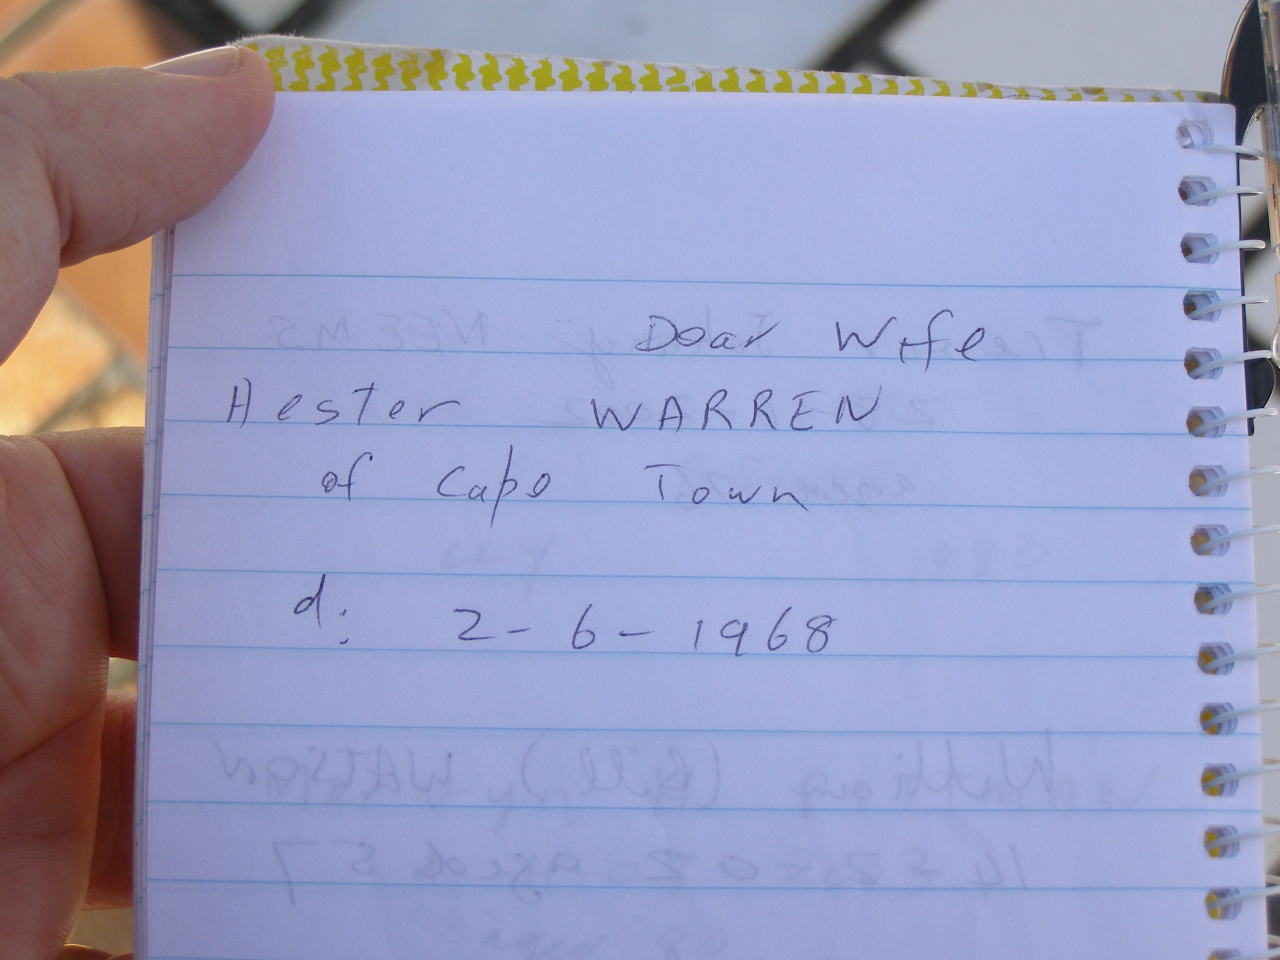 Dear Wife
Hester WARREN
of Cape Town
d: 2-6-1968